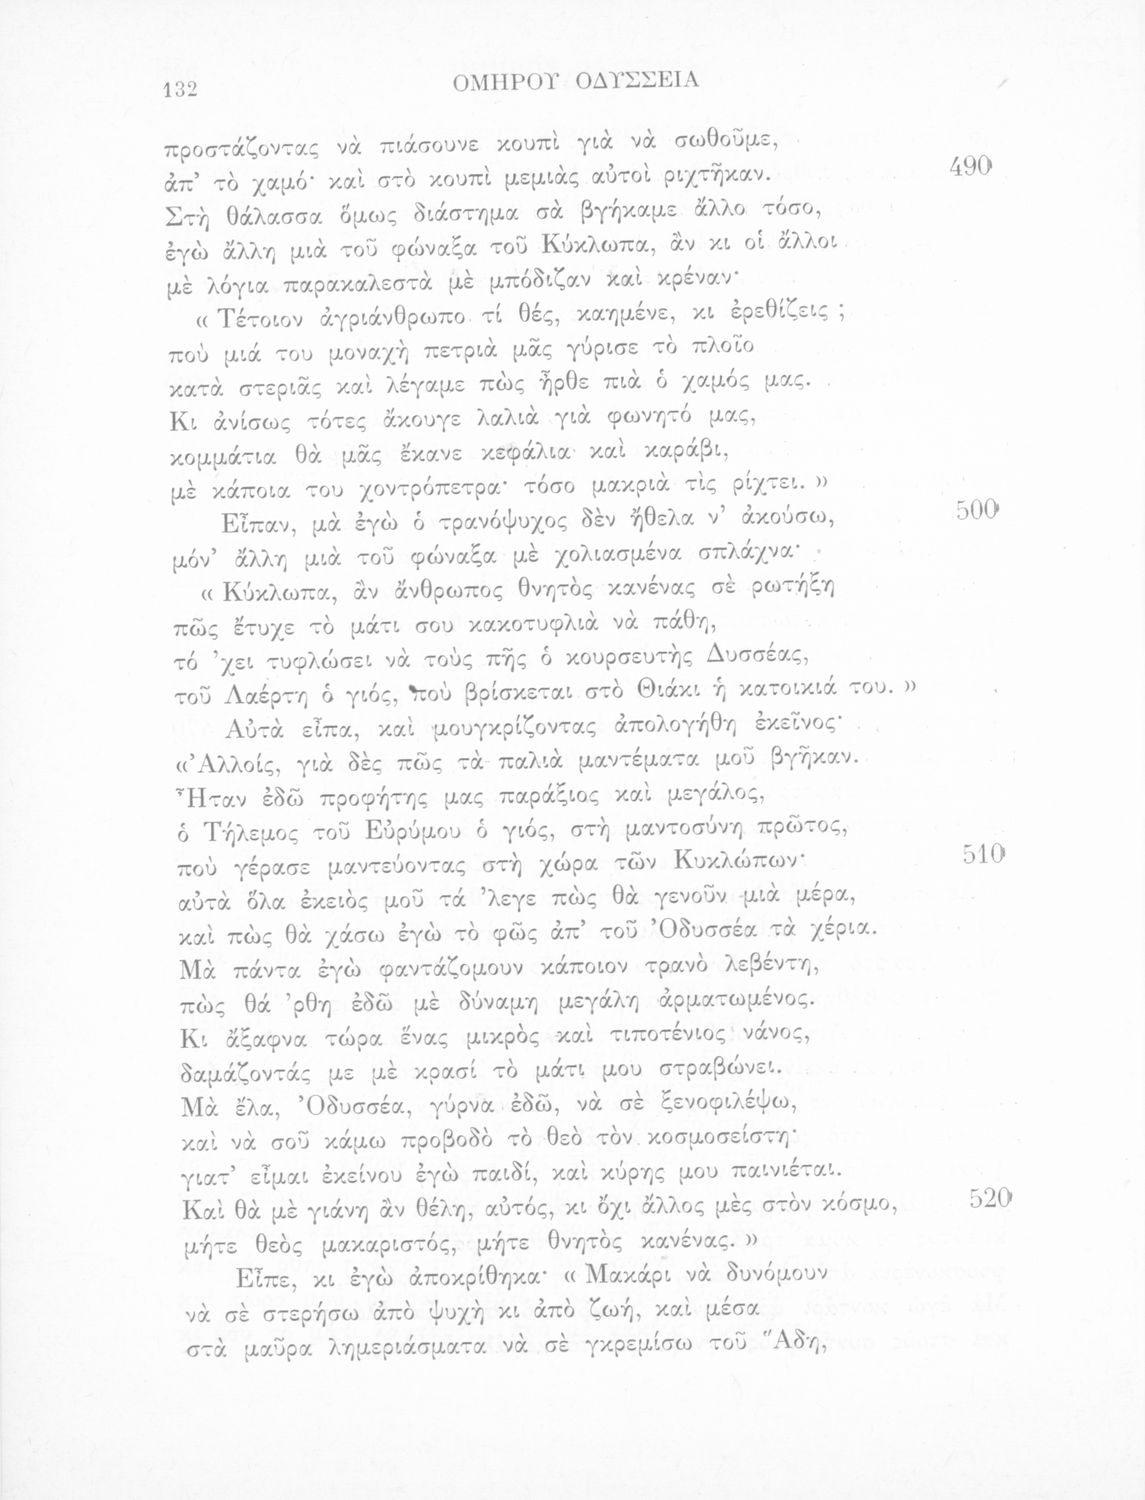 132
ΟΜΗΡΟΥ ΟΔΥΣΣΕΙΑ
προστάζοντας νὰ πιάσουνε κουπὶ γιὰ νὰ σωθοῦμε,
ἀπ’ τὸ χαμό· καὶ στὸ κουπὶ μεμιὰς αὐτοὶ ριχτῆκαν. 490
Στὴ θάλασσα ὅμως διάστημα σὰ βγήκαμε ἄλλο τόσο,
ἐγὼ ἄλλη μιὰ τοῦ φώναξα τοῦ Κύκλωπα, ἂν κι οἱ ἄλλοι
μὲ λόγια παρακαλεστὰ μὲ μπόδιζαν καὶ κρέναν·
« Τέτοιον ἀγριάνθρωπο τί θές, καημένε, κι ἐρεθίζεις ;
ποὺ μιά του μοναχὴ πετριὰ μᾶς γύρισε τὸ πλοῖο
κατὰ στεριᾶς καὶ λέγαμε πὼς ἦρθε πιὰ ὁ χαμός μας.
Κι ἀνίσως τότες ἄκουγε λαλιὰ γιὰ φωνητό μας,
κομμάτια θὰ μᾶς ἔκανε κεφάλια καὶ καράβι,
μὲ κάποια του χοντρόπετρα· τόσο μακριὰ τὶς ρίχτει. »
Εἶπαν, μὰ ἐγὼ ὁ τρανόψυχος δὲν ἤθελα ν’ ἀκούσω, 500
μόν’ ἄλλη μιὰ τοῦ φώναξα μὲ χολιασμένα σπλάχνα·
« Κύκλωπα, ἂν ἄνθρωπος θνητὸς κανένας σὲ ρωτήξη
πῶς ἔτυχε τὸ μάτι σου κακοτυφλιὰ νὰ πάθη,
τό ’χει τυφλώσει νὰ τοὺς πῆς ὁ κουρσευτὴς Δυσσέας,
τοῦ Λαέρτη ὁ γιός, ποὺ βρίσκεται στὸ Θιάκι ἡ κατοικιά του. »
Αὐτὰ εἶπα, καὶ μουγκρίζοντας ἀπολογήθη ἐκεῖνος·
«’Αλλοίς, γιὰ δὲς πῶς τὰ παλιὰ μαντέματα μοῦ βγῆκαν.
Ἦταν ἐδῶ προφήτης μας παράξιος καὶ μεγάλος,
ὁ Τήλεμος τοῦ Εὐρύμου ὁ γιός, στὴ μαντοσύνη πρῶτος,
ποὺ γέρασε μαντεύοντας στὴ χώρα τῶν Κυκλώπων· 510
αὐτὰ ὅλα ἐκειὸς μοῦ τά ’λεγε πὼς θὰ γενοῦν μιὰ μέρα,
καὶ πὼς θὰ χάσω ἐγὼ τὸ φῶς ἀπ’ τοῦ ’Οδυσσέα τὰ χέρια.
Μὰ πάντα ἐγὼ φαντάζομουν κάποιον τρανὸ λεβέντη,
πὼς θά ’ρθη ἐδῶ μὲ δύναμη μεγάλη ἁρματωμένος.
Κι ἄξαφνα τώρα ἕνας μικρὸς καὶ τιποτένιος νάνος,
δαμάζοντάς με μὲ κρασί τὸ μάτι μου στραβώνει.
Μὰ ἔλα, ’Οδυσσέα, γύρνα ἐδῶ, νὰ σὲ ξενοφιλέψω,
καὶ νὰ σοῦ κάμω προβοδὸ τὸ θεὸ τὸν κοσμοσείστη·
γιατ’ εἶμαι ἐκείνου ἐγὼ παιδί, καὶ κύρης μου παινιέται.
Καὶ θὰ μὲ γιάνη ἂν θέλη, αὐτός, κι ὄχι ἄλλος μὲς στὸν κόσμο, 520
μήτε θεὸς μακαριστός, μήτε θνητὸς κανένας. »
Εἶπε, κι ἐγὼ ἀποκρίθηκα· « Μακάρι νὰ δυνόμουν
νὰ σὲ στερήσω ἀπὸ ψυχὴ κι ἀπὸ ζωή, καὶ μέσα
στὰ μαῦρα λημεριάσματα νὰ σὲ γκρεμίσω τοῦ Ἅδη,